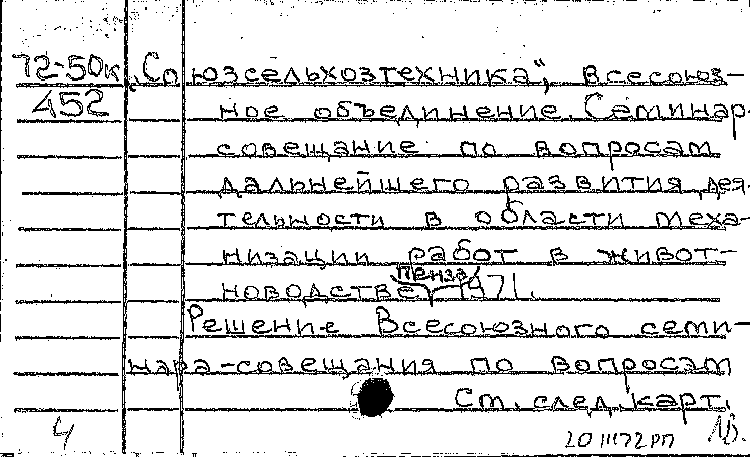 72-50к „Союзсельхозтехника“, Всесоюз-
452 ное объединение. Семинар-
совещание по вопросам
дальнейшего развития дея-
тельности в области меха-
низации работ в живот-
новодстве, Пенза, 1971.
Решение Всесоюзного семи-
нара-совещания по вопросам
См. след. карт.
4 20 III 72 РП